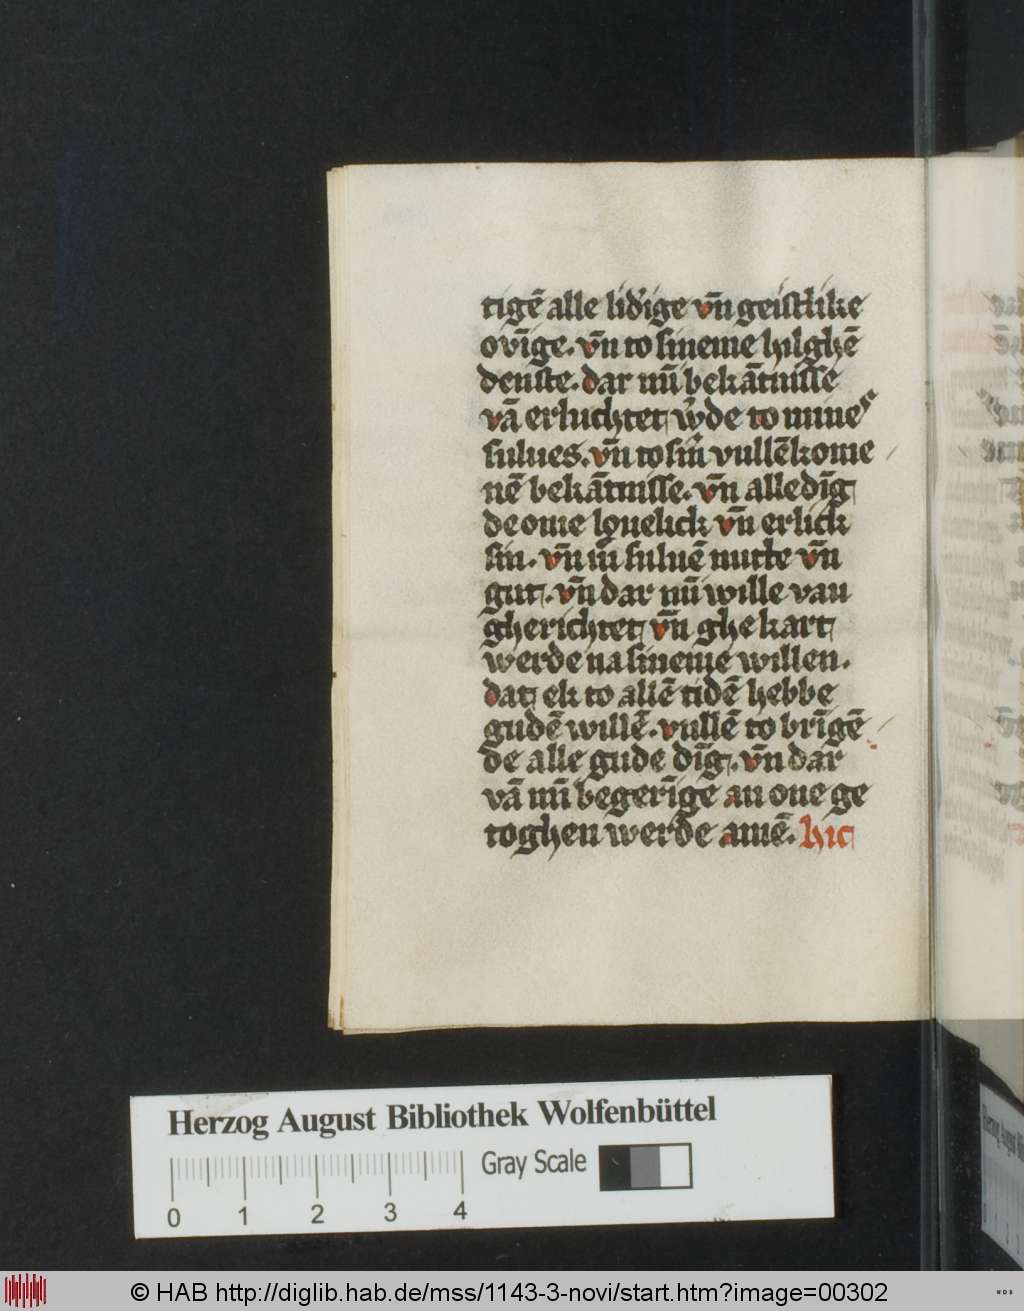 tigē alle lidīge vn̄ geistlike
ovīge. vn̄ to sineme hilghē
denste. dar mī bekātnisse
vā erluchtet w̓de to mine
sulues. vn̄ to sin̓ vullēkome
nē bekātnisse. vn̄ alle dīg
de ome louelick vn̄ erlick
sin. vn̄ mī suluē nutte vn̄
gut. vn̄ dar mī wille van
gherichtet vn̄ ghekart
werde na sineme willen.
dat ek to allē tidē hebbe
gudē willē. vullē to brīgē
de alle gude dīg. vn̄ dar
vā mī begerīge an one ge
toghen werde amē. hic
Herzog August Bibliothek Wolfenbüttel
Gray Scale
0 1 2 3 4
© HAB http://diglib.hab.de/mss/1143-3-novi/start.htm?image=00302